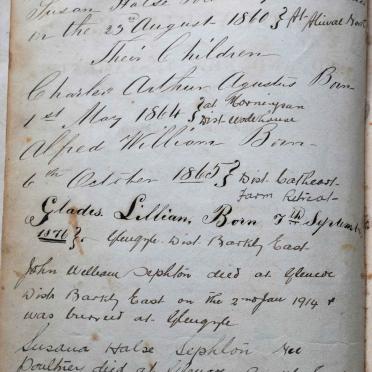 Susan Halse
in the 23rd August 1860 } At Aliwal North
Their Children
Charles Arthur Agustus Born
1st May 1864 } at Morningsun
Dist Wodehouse
Alfred William Born
6th October 1865 } Dist Cathcart
Farm Retreat
Glades Lillian, Born 7th September
1876 } Glengyle Dist Barkly East
John William Sephton died at Glencoe
Dist Barkly East on the 2nd Jan 1914 &
was burried at Glengyle
Susana Halse Sephton nee
died at